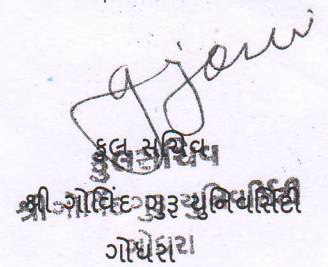 કુલ સચિવ
શ્રી ગોવિંદ ગુરૂ યુનિવર્સિટી
ગોધરા